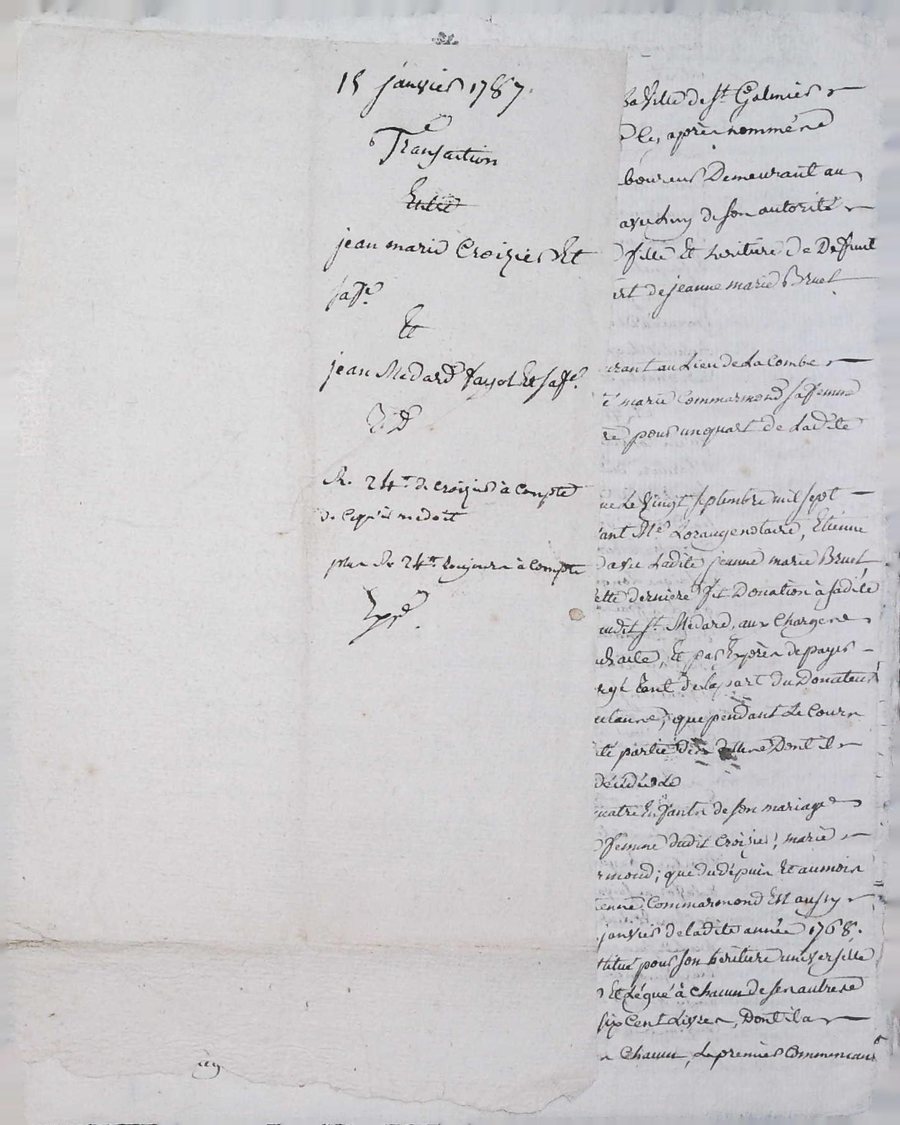 15 janvier 1787.
Transaction
Entre
jean marie Croizier Et
saffe.
Et
jean Medard fayol Et saffe.
R. 24tt de croizier à compte
de ce qu'il me doit
plus R. 24tt toujours à compte
Exp.
la Ville de St. Galmier
les après nommés
boureur Demeurant au
avec luy de son autorité
fille Et heritiere de Defunt
et de jeanne marie Bruel
urant au Lieu de La Combe
marie Commarmond saffemme
pour un quart de Ladite
que Le Vingt septembre mil sept
ant Me. Lorange notaire, Etienne
avec Ladite jeanne marie Bruel,
ette derniere fit Donation à sadite
audit St. Medard, aux Charges
Et par Exprès de payer
tant de la part du Donateur
que pendant Le Cours
partie Dont il
décédé Le
quatre Enfants de son mariage
femme dudit Croizier; marie
rmond; que dudépuis Et aumois
ienne Commarmond Est aussy
janvier de ladite année 1768.
titué pour son heritiere universelle
Et Légué à chacun de ses autres
six Cent Livres, Dont il a
a Chacun, Le premier Commençant